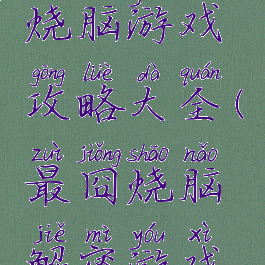 烧脑游戏
gōng lüè dà quán
攻略大全(
zuì jiǒng shāo nǎo
最囧烧脑
jiě mì yóu xì
解密游戏